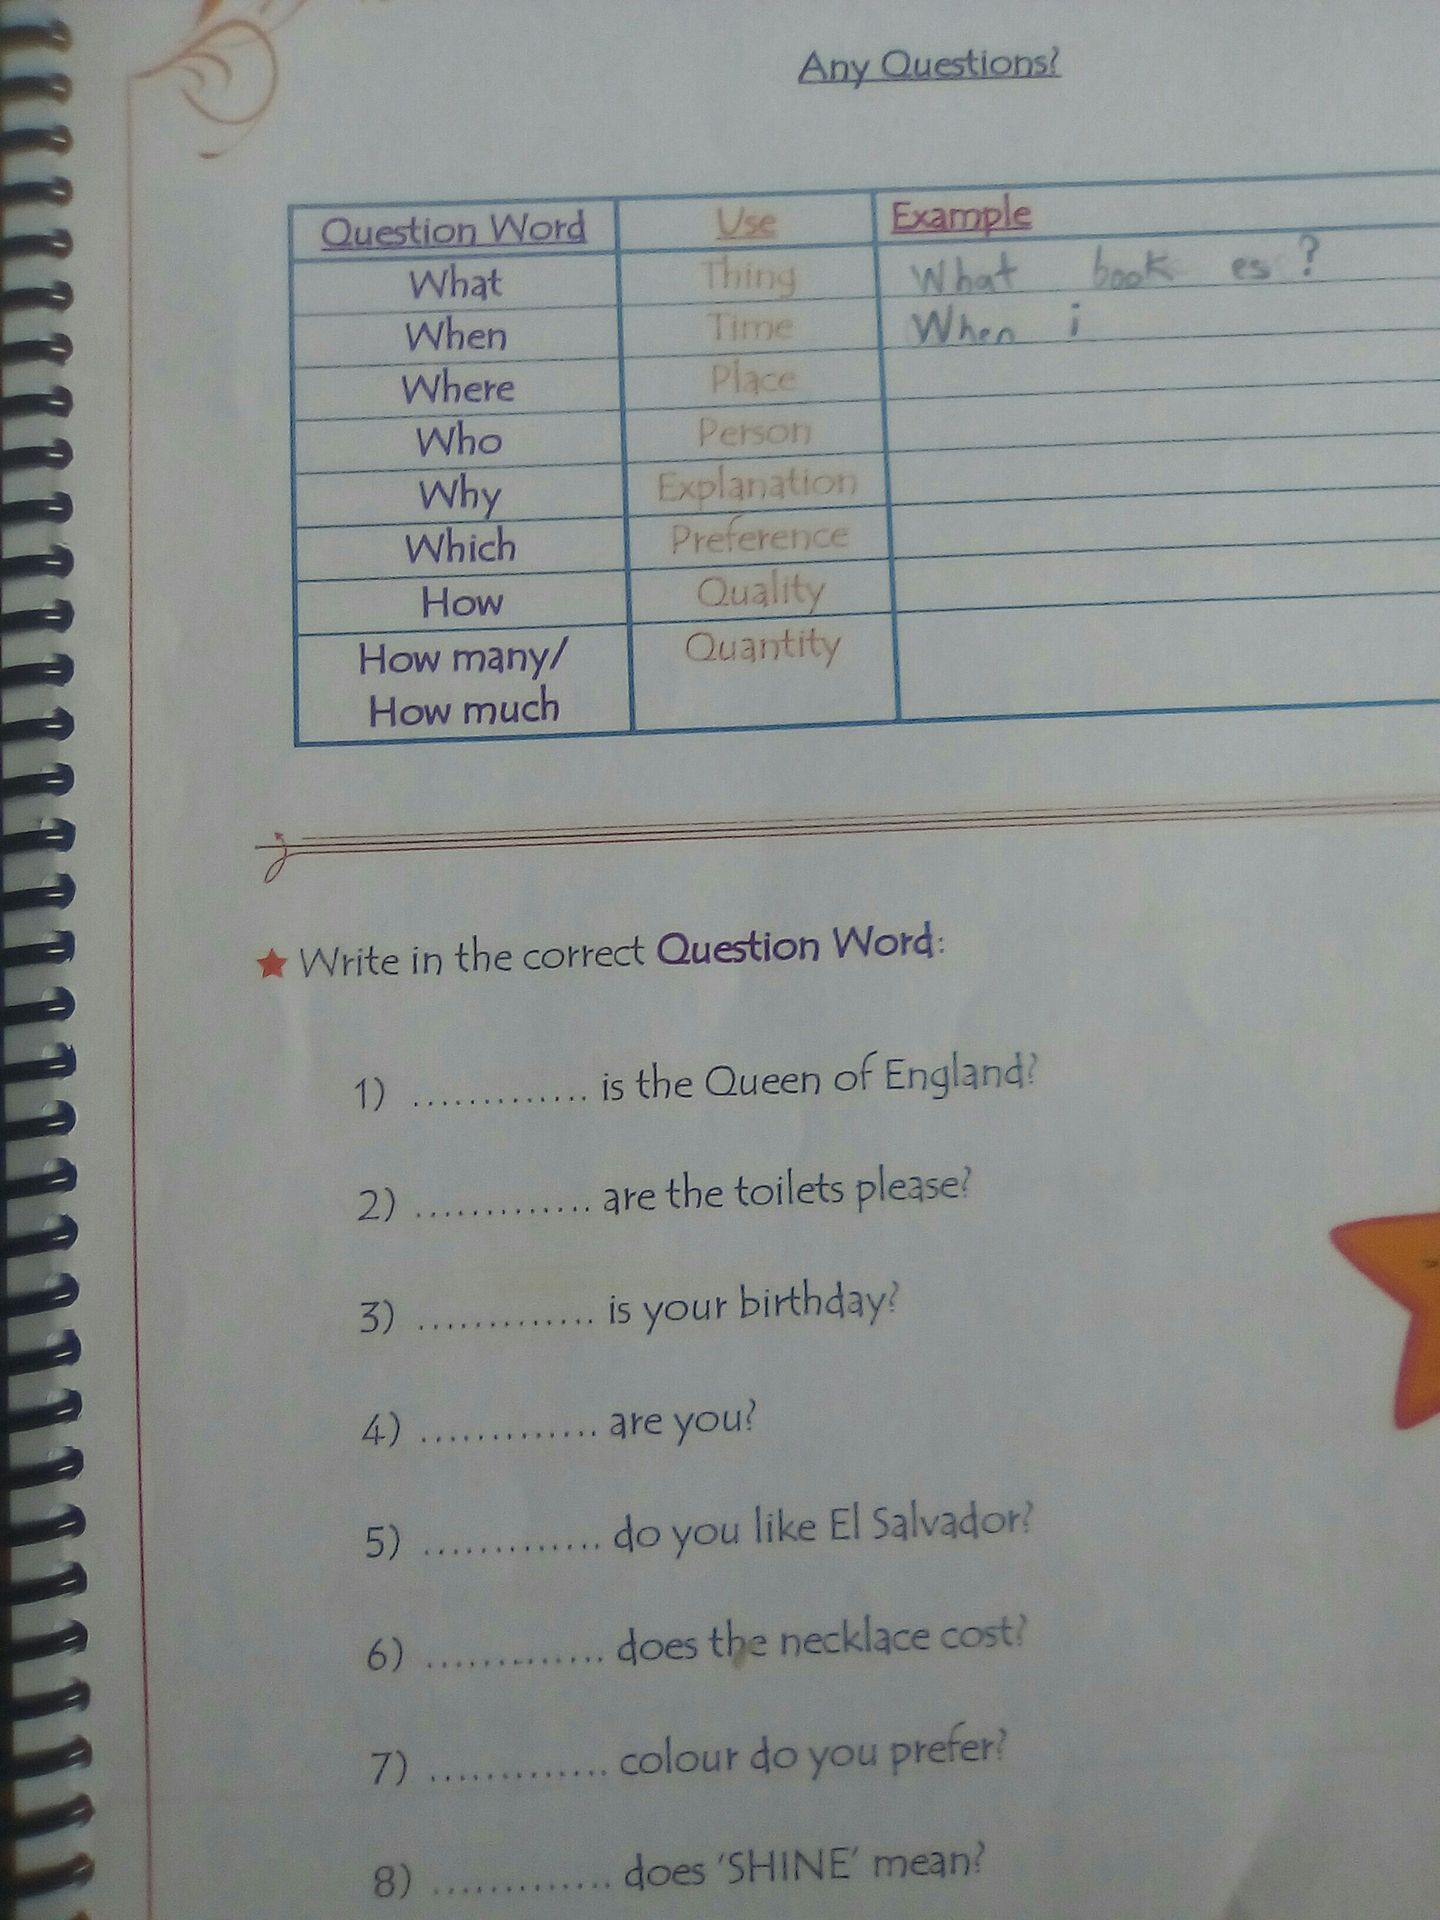 Any Questions?
Question Word Use Example
What Thing What book es ?
When Time When i
Where Place
Who Person
Why Explanation
Which Preference
How Quality
How many/ Quantity
How much
Write in the correct Question Word:
1) ............. is the Queen of England?
2) ............. are the toilets please?
3) ............. is your birthday?
4) ............. are you?
5) ............. do you like El Salvador?
6) ............. does the necklace cost?
7) ............. colour do you prefer?
8) ............. does 'SHINE' mean?